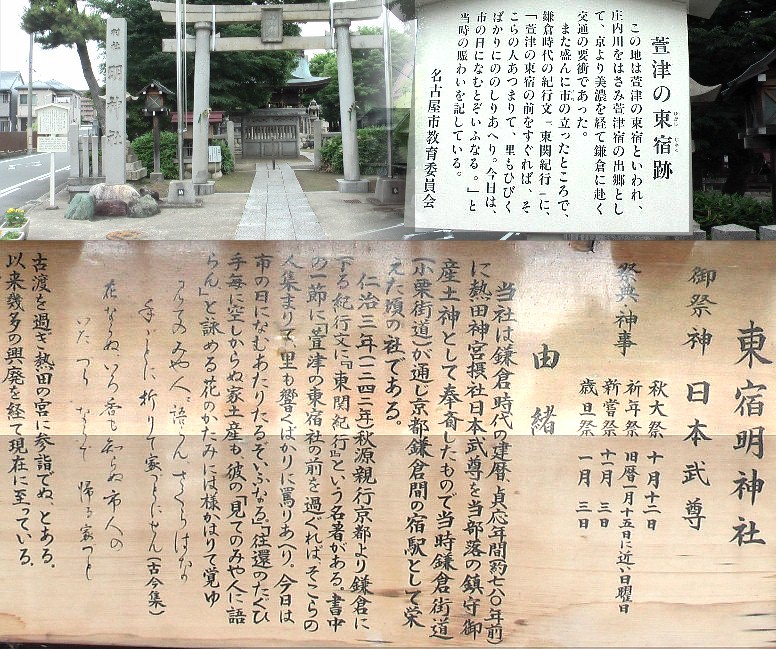 村社 明神社
萱津の東宿跡
ひがし じゅく
この地は萱津の東宿といわれ、
庄内川をはさみ萱津宿の出郷とし
て、京より美濃を経て鎌倉に赴く
交通の要衝であった。
また盛んに市の立ったところで、
鎌倉時代の紀行文「東関紀行」に、
「萱津の東宿の前をすぐれば、そ
こらの人あつまりて、里もひびく
ばかりにののしりあへり。今日は、
市の日になむとぞいふなる。」と
当時の賑わいを記している。
名古屋市教育委員会
東宿明神社
御祭神 日本武尊
祭典・神事
秋大祭 十月十二日
祈年祭 旧暦一月十五日に近い日曜日
新嘗祭 十二月三日
歳旦祭 一月三日
由緒
当社は鎌倉時代の建暦、貞応年間(約七八〇年前)
に熱田神宮摂社日本武尊を当部落の鎮守御
産土神として奉斎したもので当時鎌倉街道
(小栗街道)が通じ京都鎌倉間の宿駅として栄
えた頃の社である。
仁治三年(一二四二年)秋源親行京都より鎌倉に
下る紀行文に『東関紀行』という名著がある。書中
の一節に「萱津の東宿社の前を過ぐればそこらの
人集まりて、里も響くばかりに罵りあへり。今日は
市の日になむあたりたるぞいふなる」「往還のたぐひ
手毎に空しからぬ家土産も、彼の「見てのみや人に語
らん」と詠める花のかたみには様かはりて覚ゆ
見てのみや人に語らん さくらはな
手ことに 折りて家づとにせん(古今集)
花ならぬ いろ香も知らぬ市人の
いたつら ならで 帰る家つと
古渡を過ぎ熱田の宮に参詣でぬ、とある。
以来幾多の興廃を経て現在に至っている。